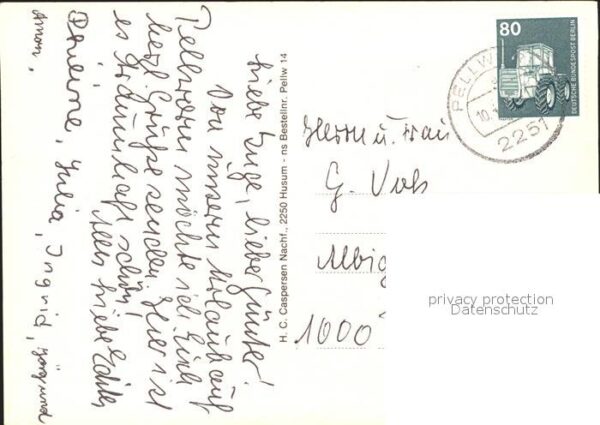 Liebe Inge, lieber Günter!
Von unserm Urlaub auf
Pellworm möchte ich Euch
herzl. Grüße senden. Hier ist
es traumhaft schön!
Alles Liebe
Julia, Ingrid,
H. C. Caspersen Nachf., 2250 Husum - ns Bestellnr. Pellw 14
80
DEUTSCHE BUNDESPOST BERLIN
PELLW
10.
2251
Herrn u. Frau
G.
Albig
1000
privacy protection
Datenschutz